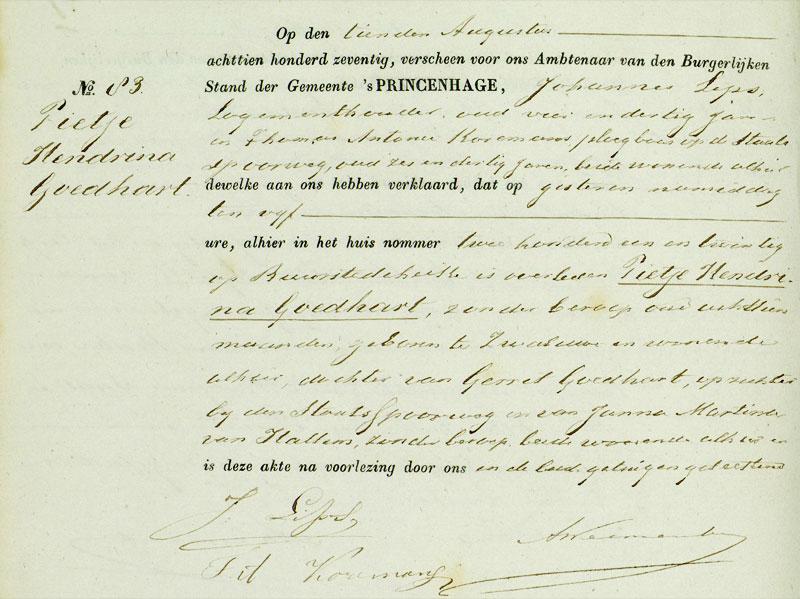 Op den tienden Augustus
achttien honderd zeventig, verscheen voor ons Ambtenaar van den Burgerlijken
Stand der Gemeente 's PRINCENHAGE, Johannes Lips,
No. 83.
Pietje
Hendrina
Goedhart.
Logementhouder, oud vier en dertig jaren
en Thomas Antonie Koremans ploegbaas op de Staats
spoorweg, oud zes en dertig jaren, beide wonende alhier
dewelke aan ons hebben verklaard, dat op gisteren namiddag
ten vyf
ure, alhier in het huis nommer twee honderd een en twintig
op is overleden Pietje Hendri-
na Goedhart, zonder beroep oud achttien
maanden, geboren te Zwaluwe en wonende
alhier, dochter van Gerret Goedhart, opzichter
by den Staats Spoorweg en van Janna Martina
van Hattem, zonder beroep, beide wonende alhier en
is deze akte na voorlezing door ons en de beide getuigen geteekend
J. Lips
T. A. Koremans